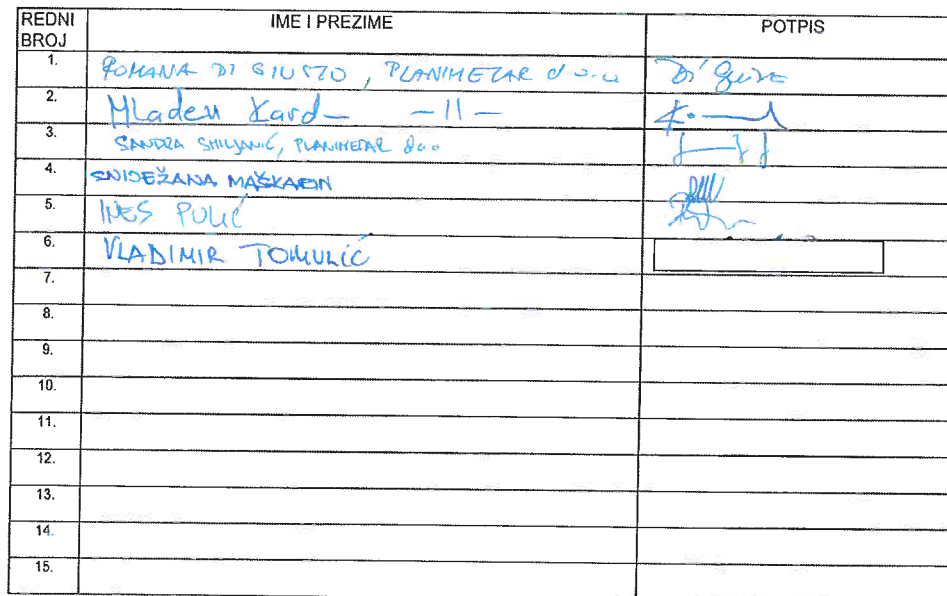 REDNI BROJ IME I PREZIME POTPIS
1. ROMANA DI GIUSTO, PLANIMETAR d.o.o
2. Mladen Kard — 11 —
3. SANDRA SMILJANIĆ, PLANIMETAR doo
4. SNIJEŽANA MAŠKARIN
5. INES PULIĆ
6. VLADIMIR TOMULIĆ
7.
8.
9.
10.
11.
12.
13.
14.
15.